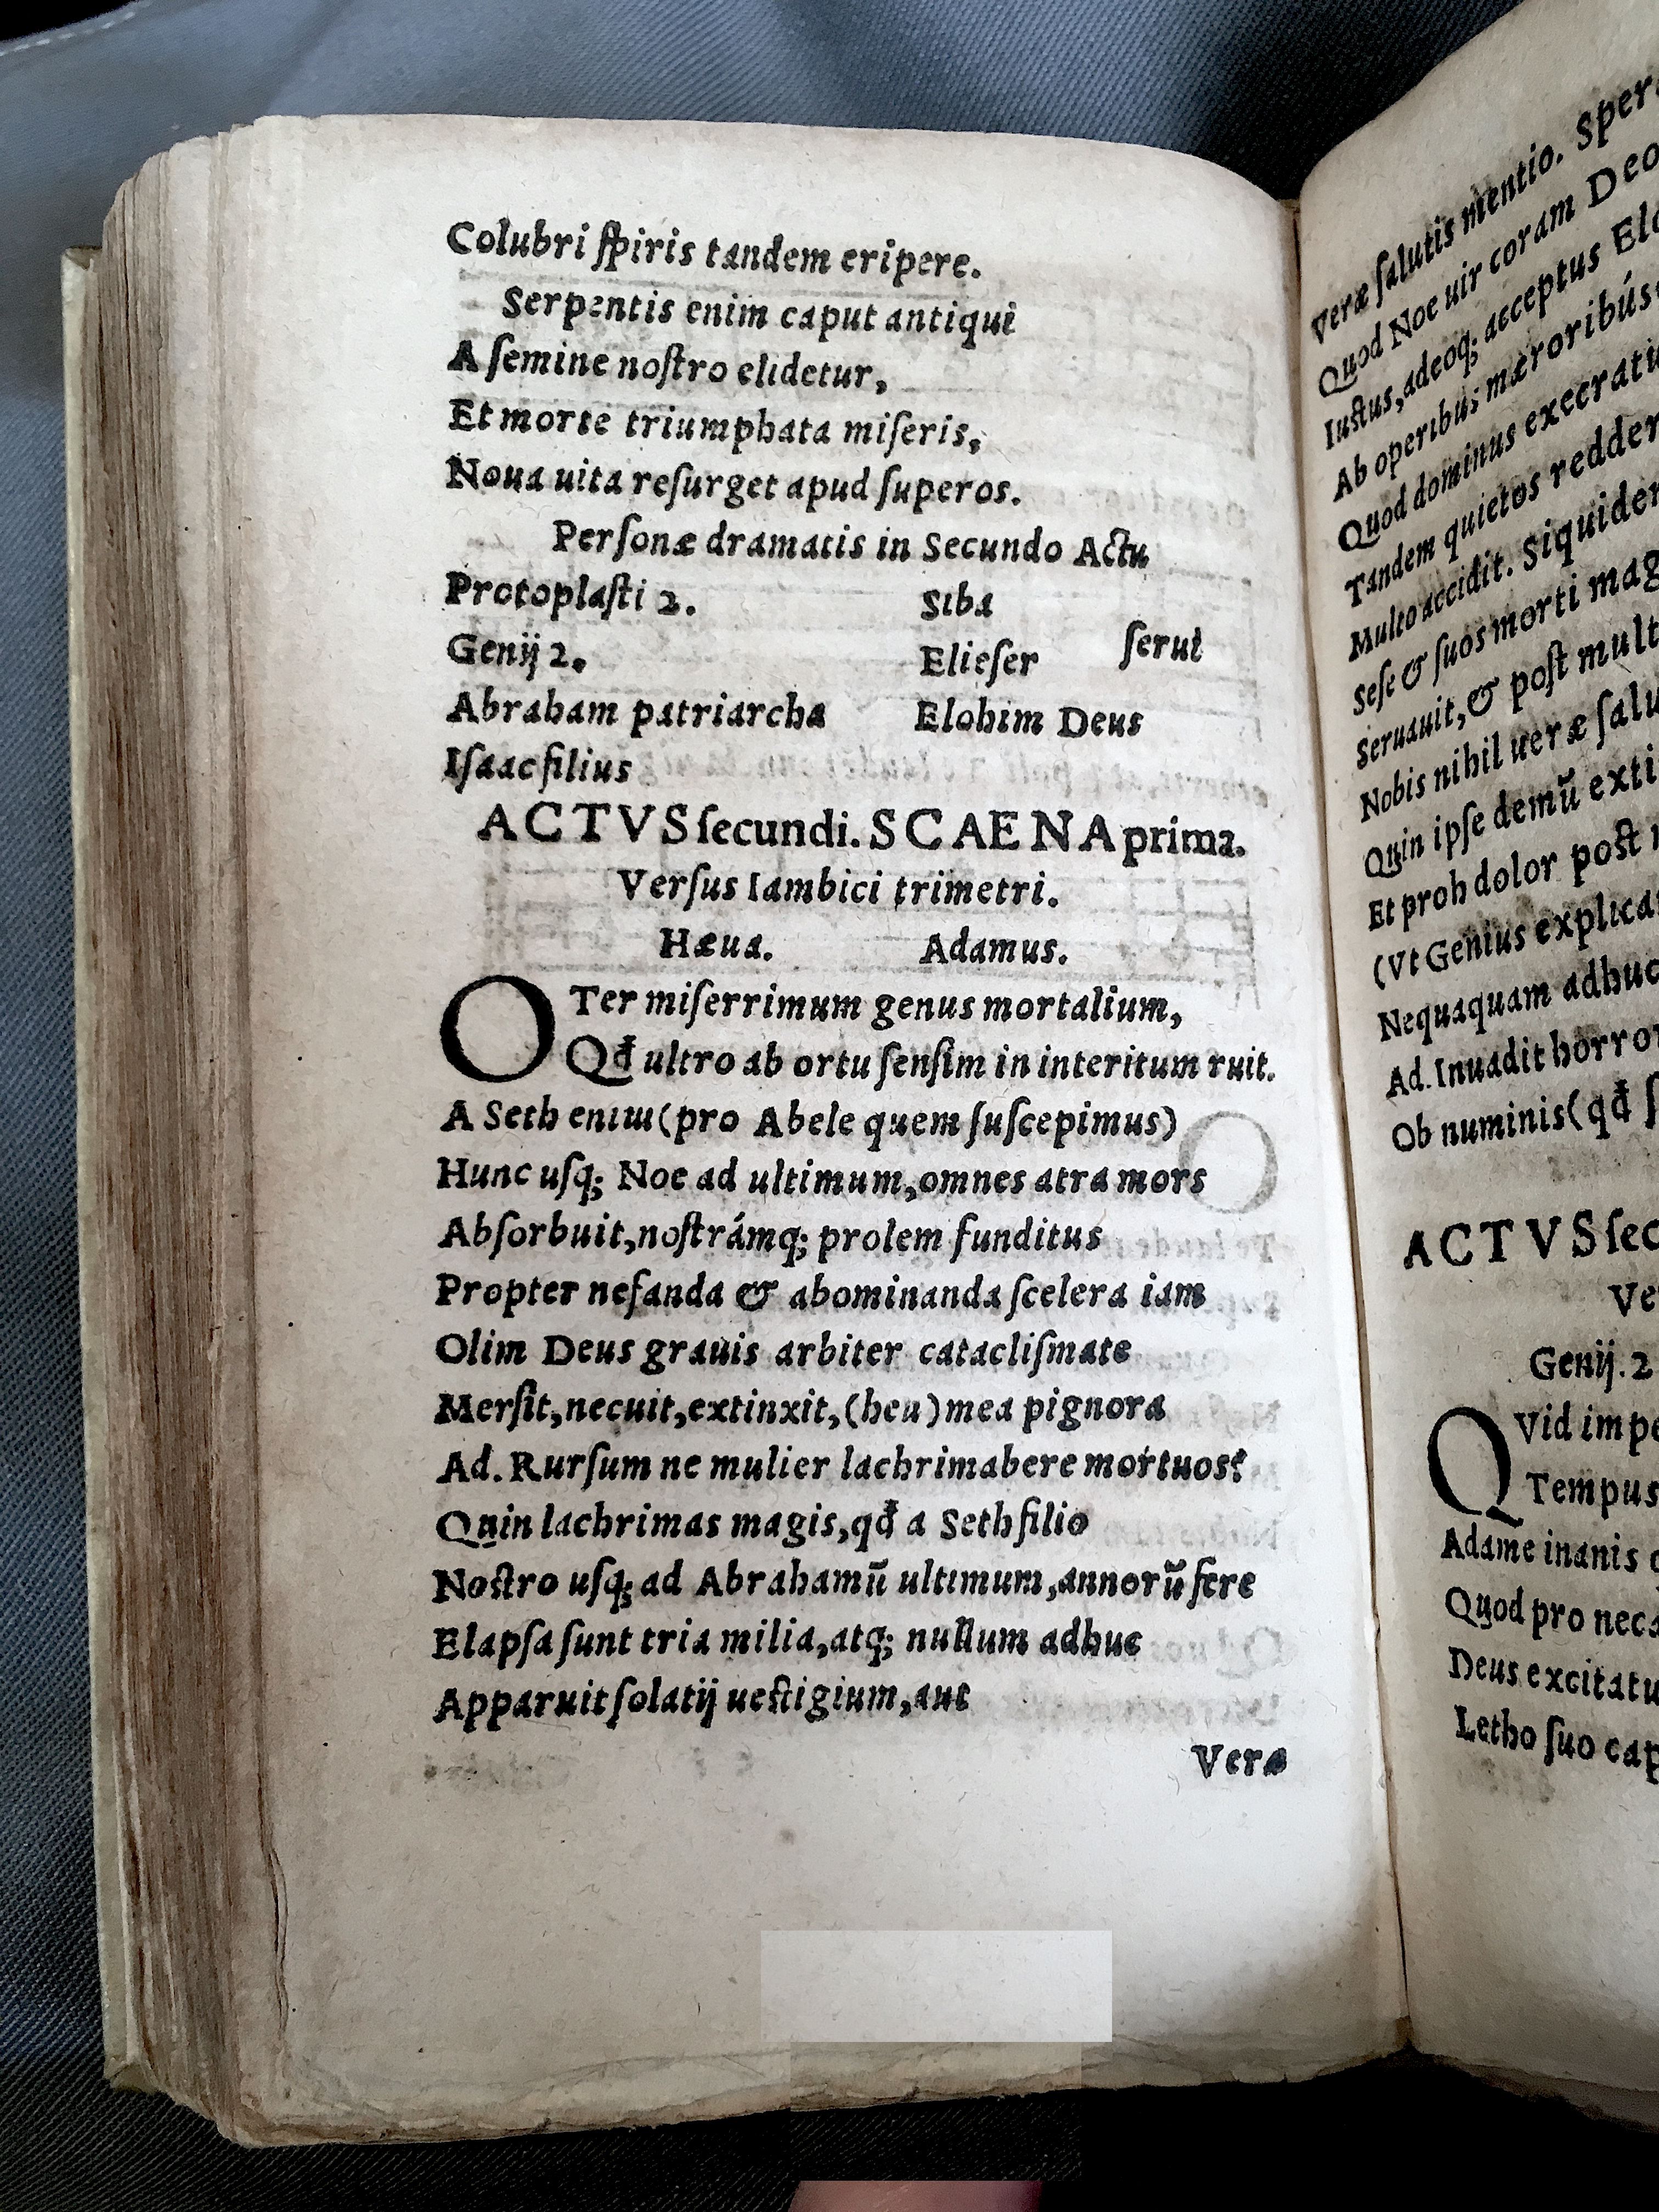 Colubri ſpiris tandem eripere.
Serpentis enim caput antiqui
A ſemine noſtro elidetur,
Et morte triumphata miſeris,
Noua uita reſurget apud ſuperos.
Perſonæ dramatis in Secundo Actu
Protoplaſti 2. Siba
Genij 2. Elieſer ſerui
Abraham patriarcha Elohim Deus
Iſaac filius
ACTVS ſecundi. SCAENA prima.
Verſus Iambici trimetri.
Hæua. Adamus.
O Ter miſerrimum genus mortalium,
Qđ ultro ab ortu ſenſim in interitum ruit.
A Seth enim (pro Abele quem ſuſcepimus)
Hunc uſq; Noe ad ultimum, omnes atra mors
Abſorbuit, noſtrámq; prolem funditus
Propter nefanda & abominanda ſcelera iam
Olim Deus grauis arbiter catacliſmate
Merſit, necuit, extinxit, (heu) mea pignora
Ad. Rurſum ne mulier lachrimabere mortuos?
Quin lachrimas magis, qđ a Seth filio
Noſtro uſq; ad Abrahamū ultimum, annorū fere
Elapſa ſunt tria milia, atq; nullum adhuc
Apparuit ſolatij ueſtigium, aut
Veræ
Veræ ſalutis mentio.
Quod Noe uir coram Deo
Iuſtus, adeoq; acceptus
Ab operibus mæroribús
Quod dominus
Tandem quietos
Multo accidit.
Seſe & ſuos morti
Seruauit, & poſt
Nobis nihil ueræ
Quin ipſe demū
Et proh dolor poſt
(Vt Genius
Nequaquam adhuc
Ad. Inuadit
Ob numinis (qđ
ACTVS
Genij. 2
QVid
Tempus
Adame inanis
Quod pro
Deus
Letho ſuo